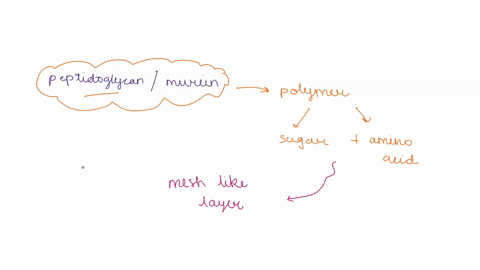 peptidoglycan / murein
polymer
sugar + amino
acid
mesh like
layer